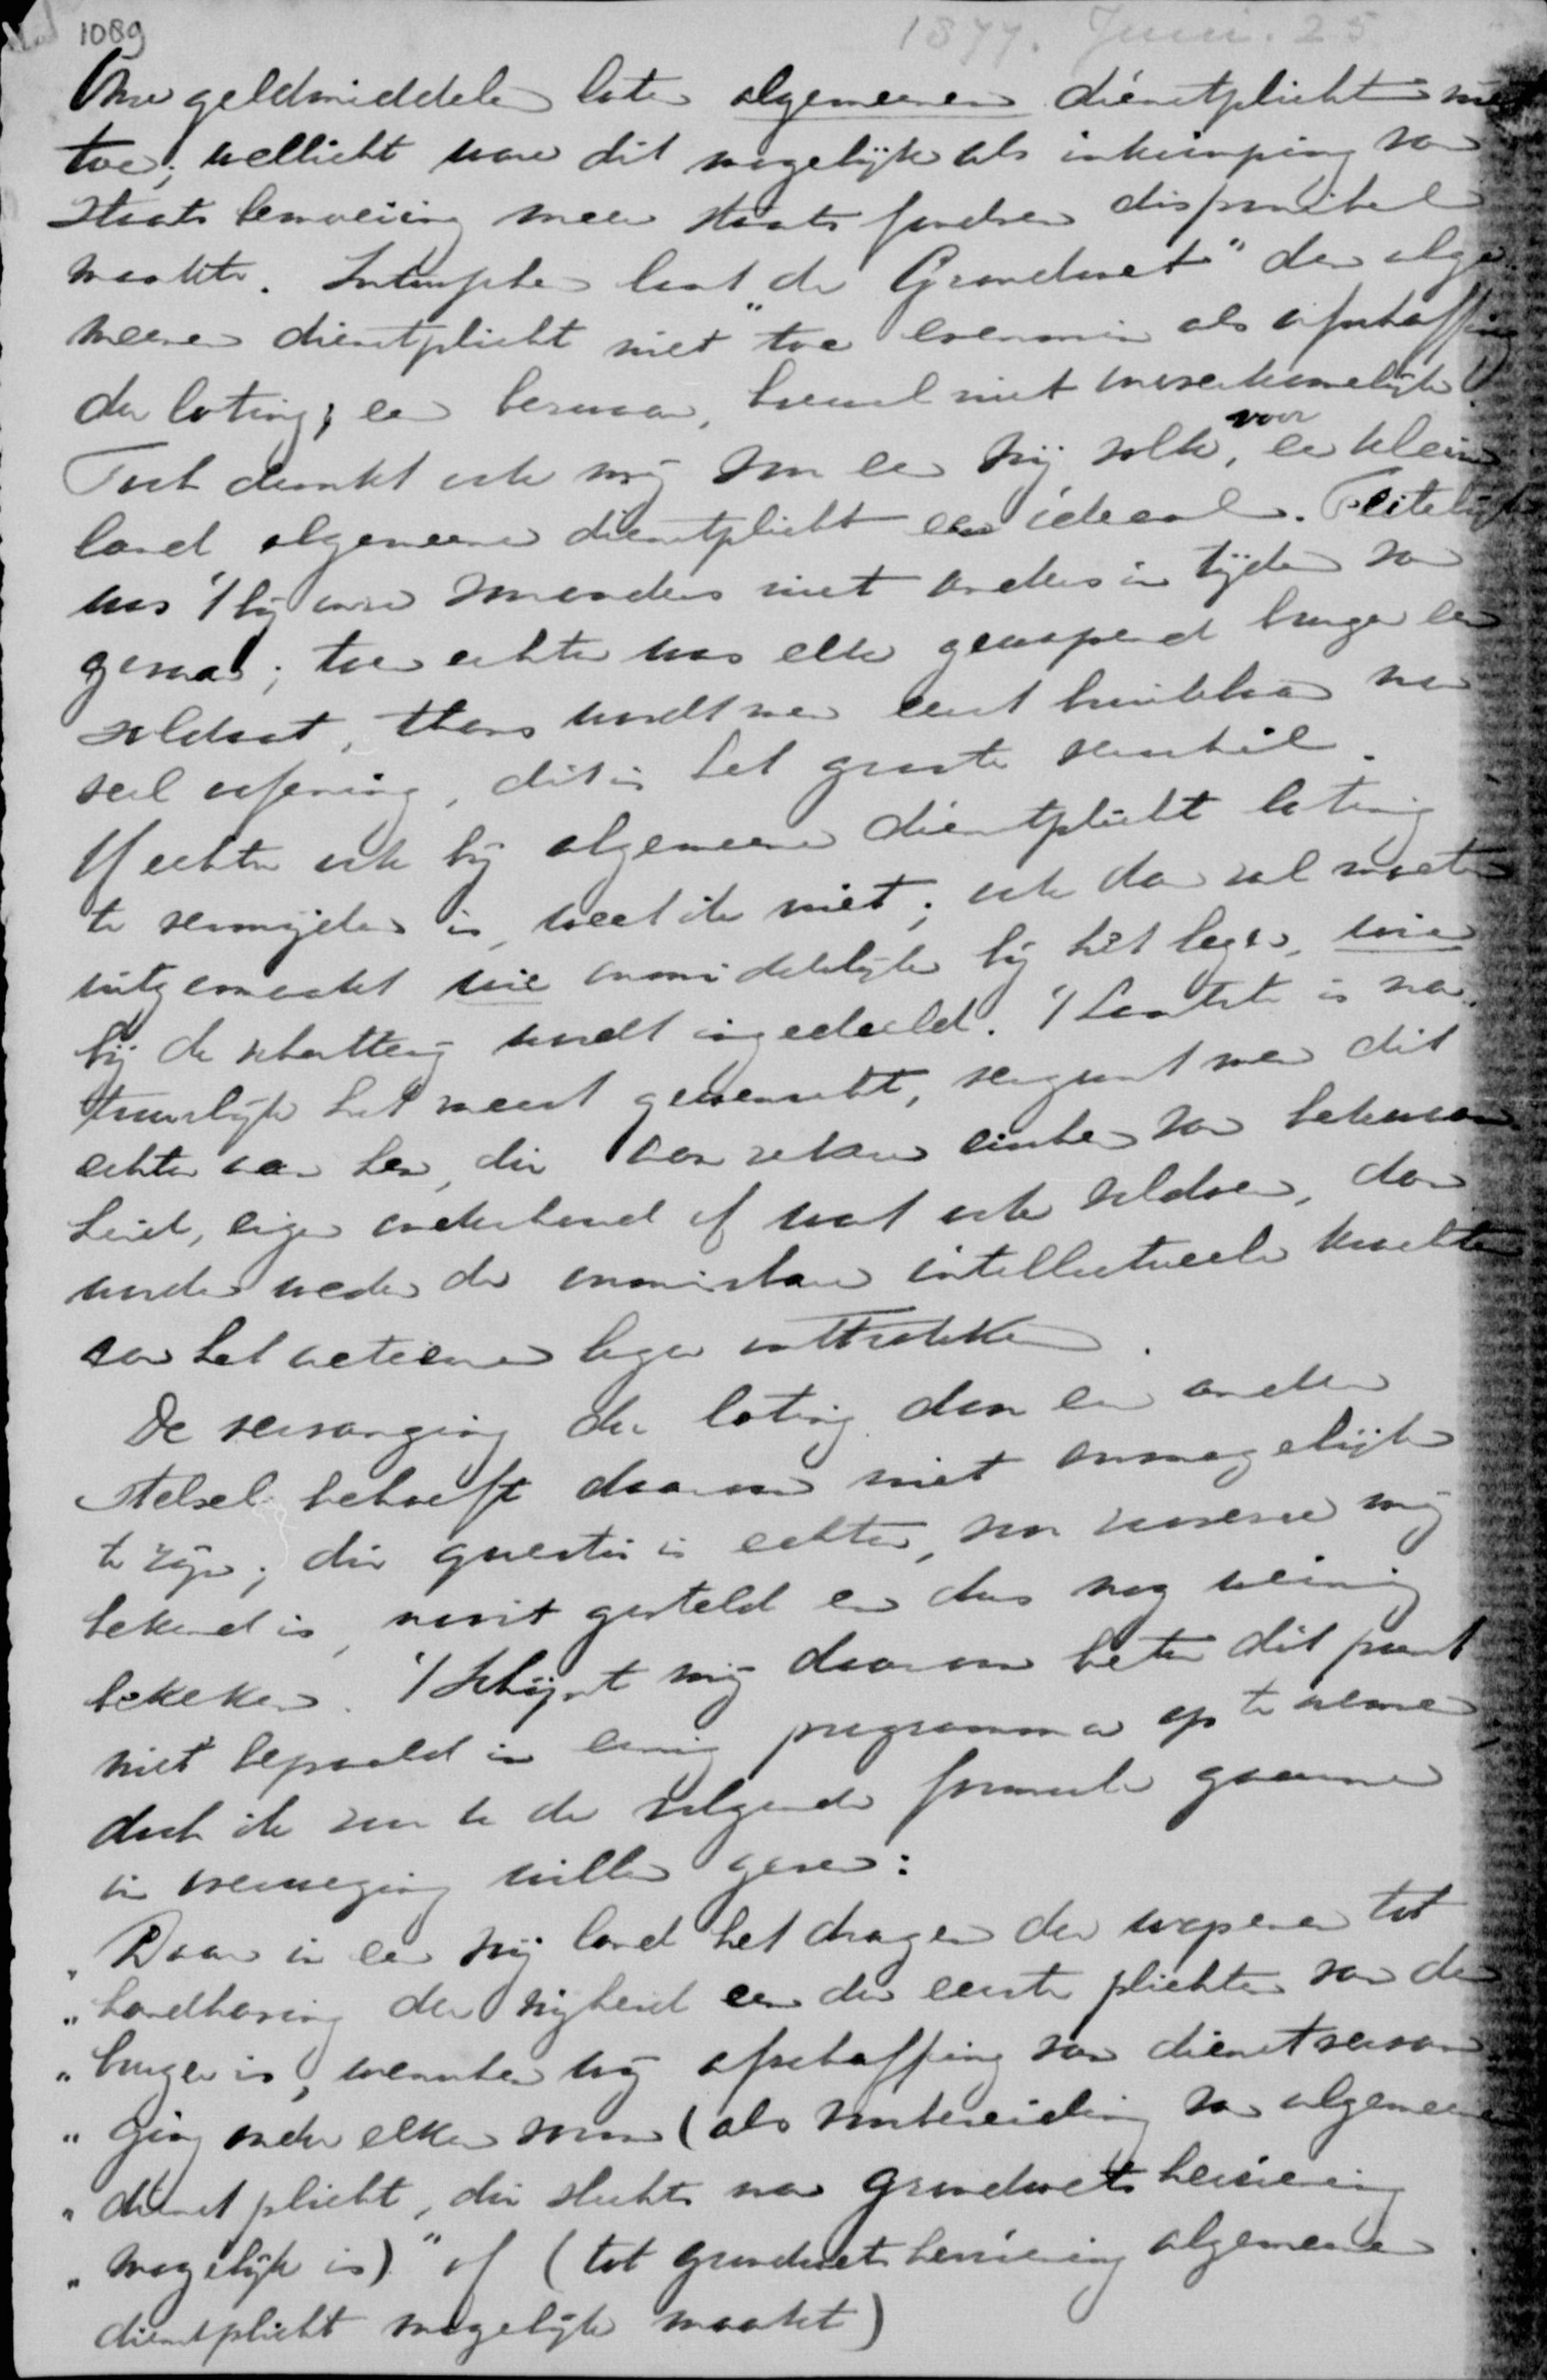 1089
1877. Juni. 25
Onze geldmiddelen laten algemeenen dienstplicht niet
toe; wellicht ware dit mogelijk als inkrimping van
Staatsbemoeiing meer staatsfondsen disponibel
maakte. Intusschen laat de Grondwet" den alge-
meenen dienstplicht niet "toe evenmin als afschaffing
der loting; een bezwaar, hoewel niet onoverkomelijk.
Toch dunkt ook mij voor een vrij volk, voor een klein
land algemeene dienstplicht een ideaal. Feitelijk
was 't bij onze voorouders niet anders in tijden van
gevaar; toen echter was elke gewapend burger een
soldaat, thans wordt men eerst bruikbaar na
veel oefening, dit is het groote verschil.
Of echter ook bij algemeene dienstplicht loting
te vermijden is, weet ik niet; ook dan zal moeten
uitgemaakt wie onmiddelijk bij het leger, wie
bij de schutterij wordt ingedeeld. 't Laatste is na-
tuurlijk het meest gewenscht, vergunt men dit
echter aan hen, die aan zekere eischen van bekwaam-
heid, eigen onderhoud of wat ook voldoen, dan
worden weder de onmisbare intellectueele krachten
aan het actieve leger onttrokken.
De vervanging der loting door een ander
stelsel behoeft daarom niet onmogelijk
te zijn; die questie is echter, voor zoover mij
bekend is, nooit gesteld en dus nog weinig
bekeken. 't Schijnt mij daarom beter dit punt
niet bepaald in eenig programma op te nemen,
doch ik zou u de volgende formule gaarne
in overweging willen geven:
"Daar in een vrij land het dragen der wapenen tot
"handhaving der vrijheid een der eerste plichten van den
"burger is, wenschen wij afschaffing van dienstvervan-
"ging onder elken vorm (als voorbereiding van algemeenen
"dienstplicht, die slechts na grondwetsherziening
"mogelijk is)" of (tot grondwetsherziening algemeenen
dienstplicht mogelijk maakt)